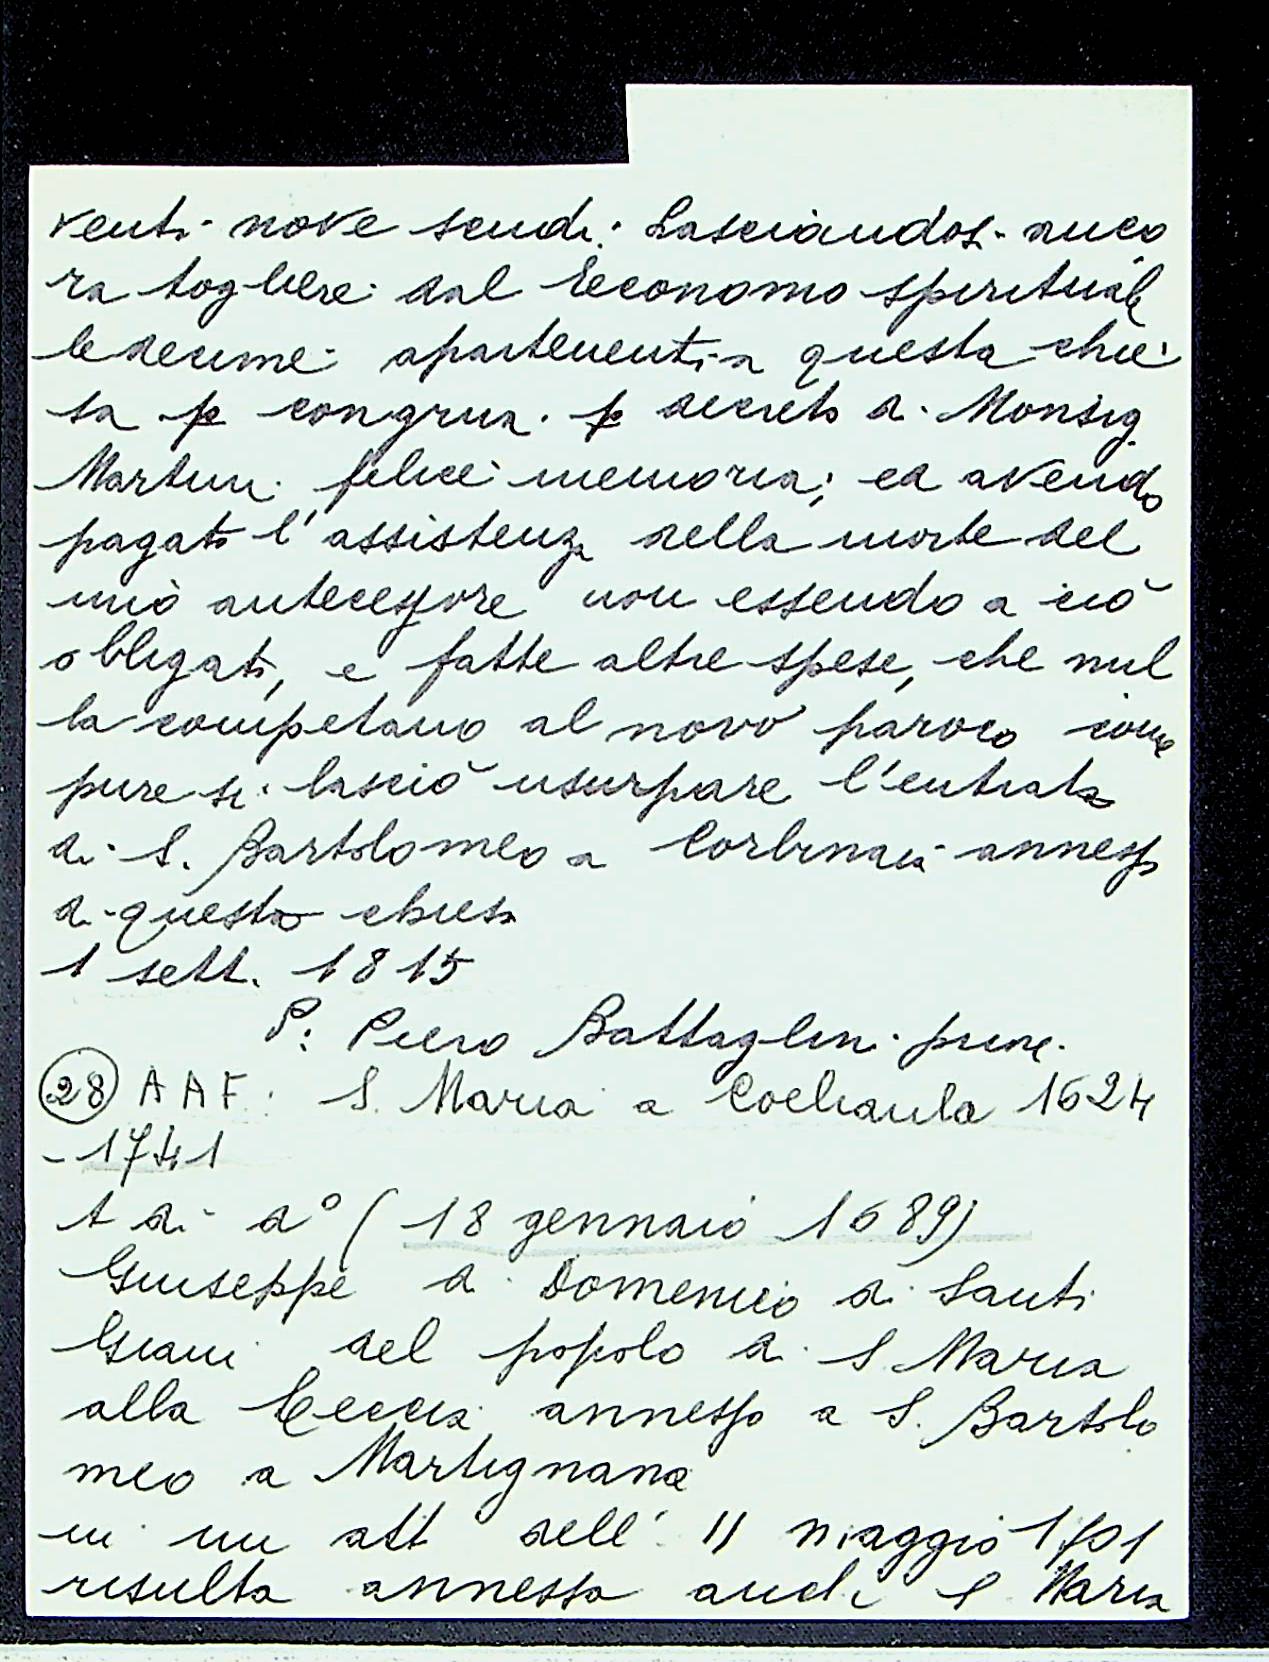 venti nove scudi: Lasciandosi anco
ra togliere dal Economo spirituale
le decime apartenenti a questa chie
sa p congrua. p decreto di Monsig.
Martini felice memoria; ed avendo
pagato l'assistenza della morte del
mio antecessore non essendo a ciò
obligato, e fatte altre spese, che nul
la competano al novo paroco come
pure si lasciò usurpare l'entrata
di S. Bartolomeo a Corbinaia annesso
a questa chiesa
1 sett. 1815
P: Piero Battaglini
28 AAF: S. Maria a 1624
- 1741
A di d° (18 gennaio 1689)
Giuseppe di Domenico di Santi
Giani del popolo di S. Maria
alla annesso a S. Bartolo
meo a Martignana
in un att dell' 11 maggio 1701
risulta annessa anche S Maria